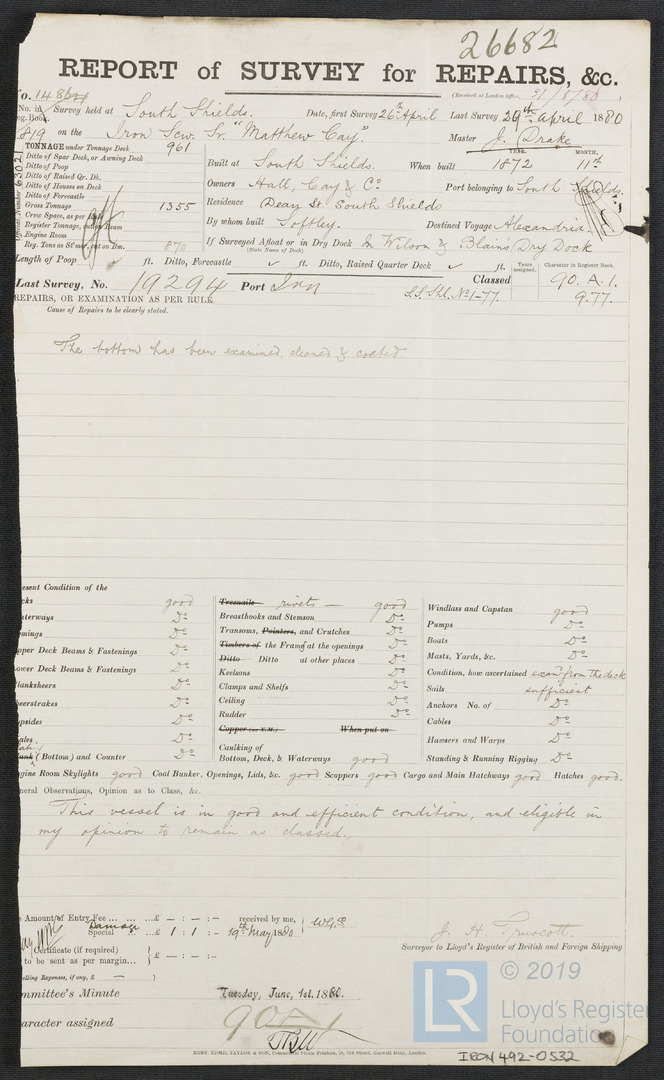 26682
REPORT of SURVEY for REPAIRS, &c.
(Received at London Office, 31/5/80
No. in Survey held at South Shields. Date, first Survey 26th April Last Survey 29th April 1880
Reg. Book.
819 on the Iron Scw. Sr. "Matthew Cay". Master J. Drake
TONNAGE under Tonnage Deck 961
Ditto of Spar Deck, or Awning Deck
Ditto of Poop
Ditto of Raised Qr. Dk.
Ditto of Houses on Deck
Ditto of Forecastle
Gross Tonnage 1355
Crew Space, as per
Register Tonnage, cut on Beam
Engine Room
Reg. Tons as St'mer, cut on Bm. 870
YEAR. MONTH.
Built at South Shields. When built 1872 11th
Owners Hall, Cay & Co Port belonging to South Shields
Residence Dean St. South Shields
By whom built Softley. Destined Voyage Alexandria.
If Surveyed Afloat or in Dry Dock In Wilson & Blains Dry Dock
(State Name of Dock)
Length of Poop ft. Ditto, Forecastle ft. Ditto, Raised Quarter Deck ft.
Years assigned. Character in Register Book.
Last Survey, No. 19294 Port Irn Classed 90. A. 1.
S.S. Shl. No 1-77. 9.77.
REPAIRS, OR EXAMINATION AS PER RULE
Cause of Repairs to be clearly stated.
The bottom has been examined, cleaned & coated
esent Condition of the
cks good
aterways Do
mings Do
pper Deck Beams & Fastenings Do
ower Deck Beams & Fastenings Do
lanksheers Do
eerstrakes Do
opsides Do
ales Do
ank (Bottom) and Counter Do
Treenails rivets — good
Breasthooks and Stemson Do
Transoms, Pointers, and Crutches Do
Timbers of the Frame at the openings Do
Ditto Ditto at other places Do
Keelsons Do
Clamps and Shelfs Do
Ceiling Do
Rudder Do
Copper (or Y.M.) When put on
Caulking of
Bottom, Deck, & Waterways good
Windlass and Capstan good
Pumps Do
Boats Do
Masts, Yards, &c. Do
Condition, how ascertained exam from the deck
Sails sufficient
Anchors No. of Do
Cables Do
Hawsers and Warps Do
Standing & Running Rigging Do
ngine Room Skylights good Coal Bunker, Openings, Lids, &c. good Scuppers good Cargo and Main Hatchways good Hatches good.
neral Observations, Opinion as to Class, &c.
This vessel is in good and efficient condition, and eligible in
my opinion to remain as classed.
Amount of Entry Fee ... ... ...£ — : — : — received by me,
Damage
Special ... £ 1 : 1 : — 19th May 1880
Certificate (if required)
to be sent as per margin... £ — : — : —
elling Expenses, if any, £ —
J. H. Truscott.
Surveyor to Lloyd's Register of British and Foreign Shipping
mmittee's Minute Tuesday, June, 1st, 1880.
aracter assigned 90A1
LR © 2019
Lloyd's Register
Foundation
IRON 492-0532